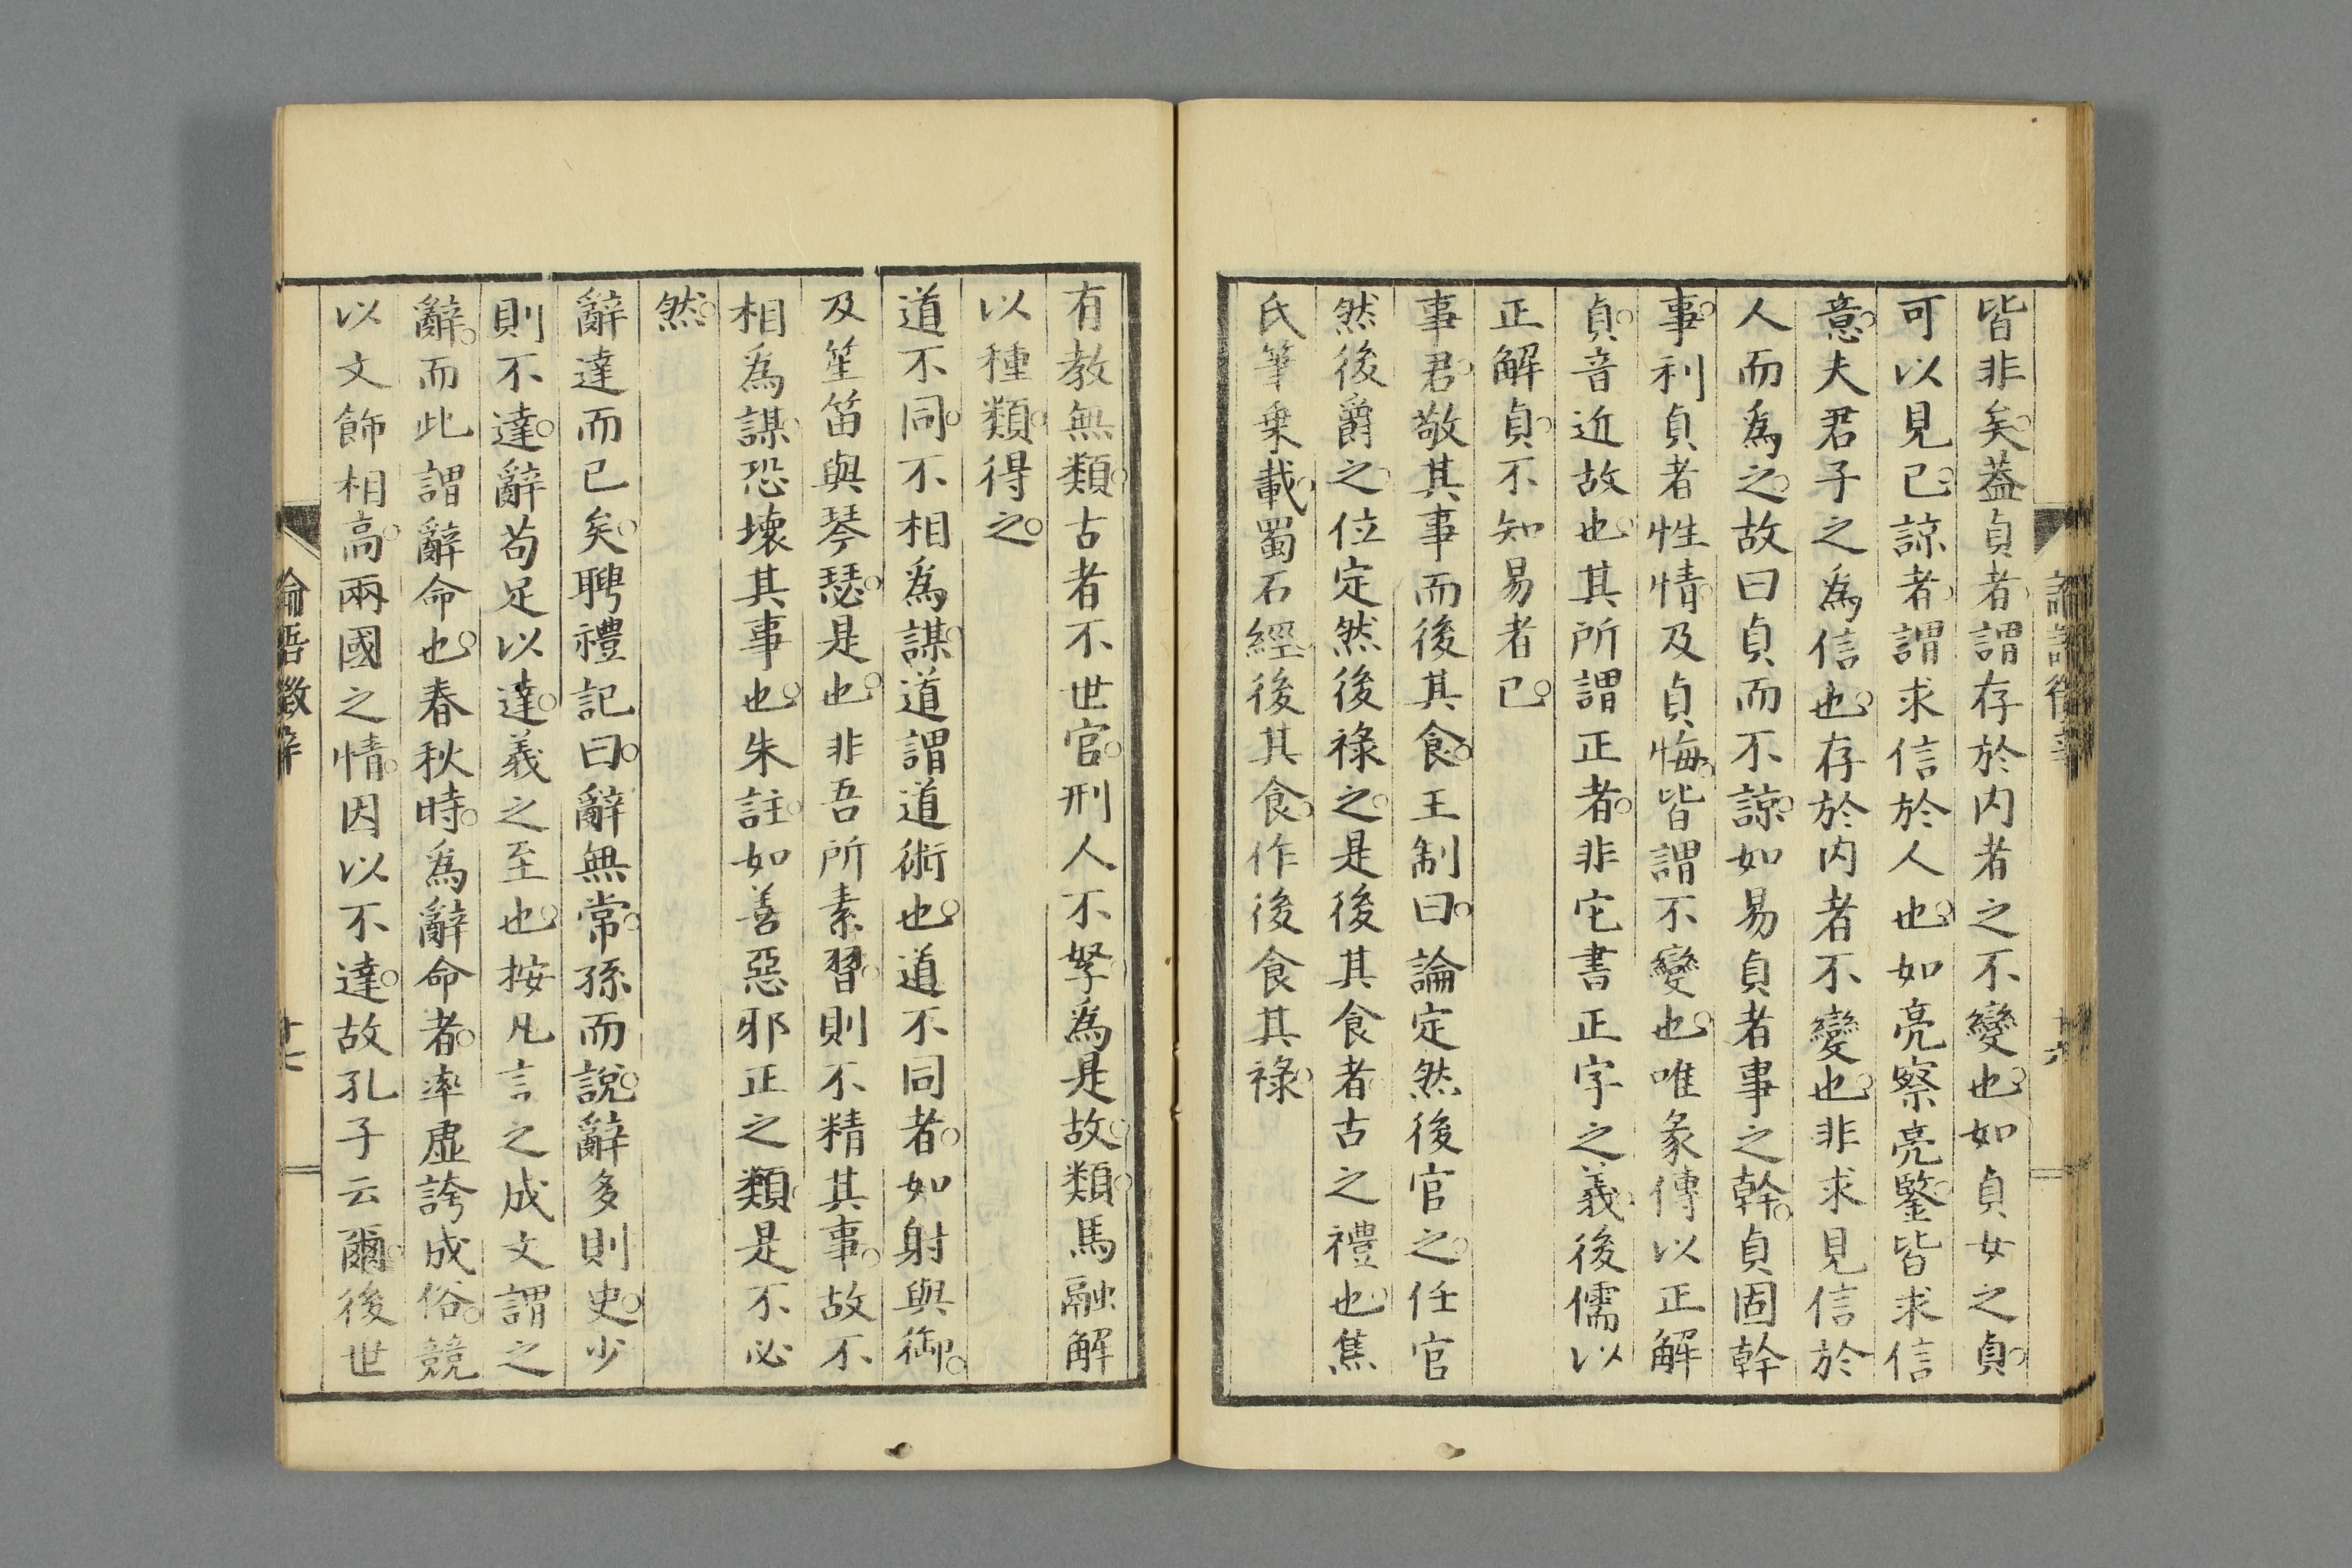 皆非矣。蓋貞者。謂存於内者之不變也。如貞女之貞。
可以見已。諒者。謂求信於人也。如亮察亮鑒。皆求信
意。夫君子之爲信也。存於内者不變也。非求見信於
人而爲之。故曰貞而不諒。如易貞者事之幹。貞固幹
事。利貞者性情。及貞悔。皆謂不變也。唯彖傳以正解
貞。音近故也。其所謂正者。非它書正字之義。後儒以
正解貞。不知易者已。
事君。敬其事而後其食。王制曰。論定然後官之。任官
然後爵之。位定然後祿之。是後其食者古之禮也。焦
氏筆乗載。蜀石經。後其食。作後食其祿。
有教無類。古者不世官。刑人不孥。爲是故。類。馬融解
以種類。得之。
道不同。不相爲謀。道謂道術也。道不同者。如射與御。
及笙笛與琴瑟。是也。非吾所素習。則不精其事。故不
相爲謀。恐壞其事也。朱註。如善惡邪正之類。是不必
然。
辭達而已矣。聘禮記曰。辭無常。孫而說。辭多則史。少
則不達。辭苟足以達。義之至也。按凡言之成文謂之
辭。而此謂辭命也。春秋時。爲辭命者。率虛誇成俗。競
以文飾相高。兩國之情。因以不達。故孔子云爾。後世
論語徵辛